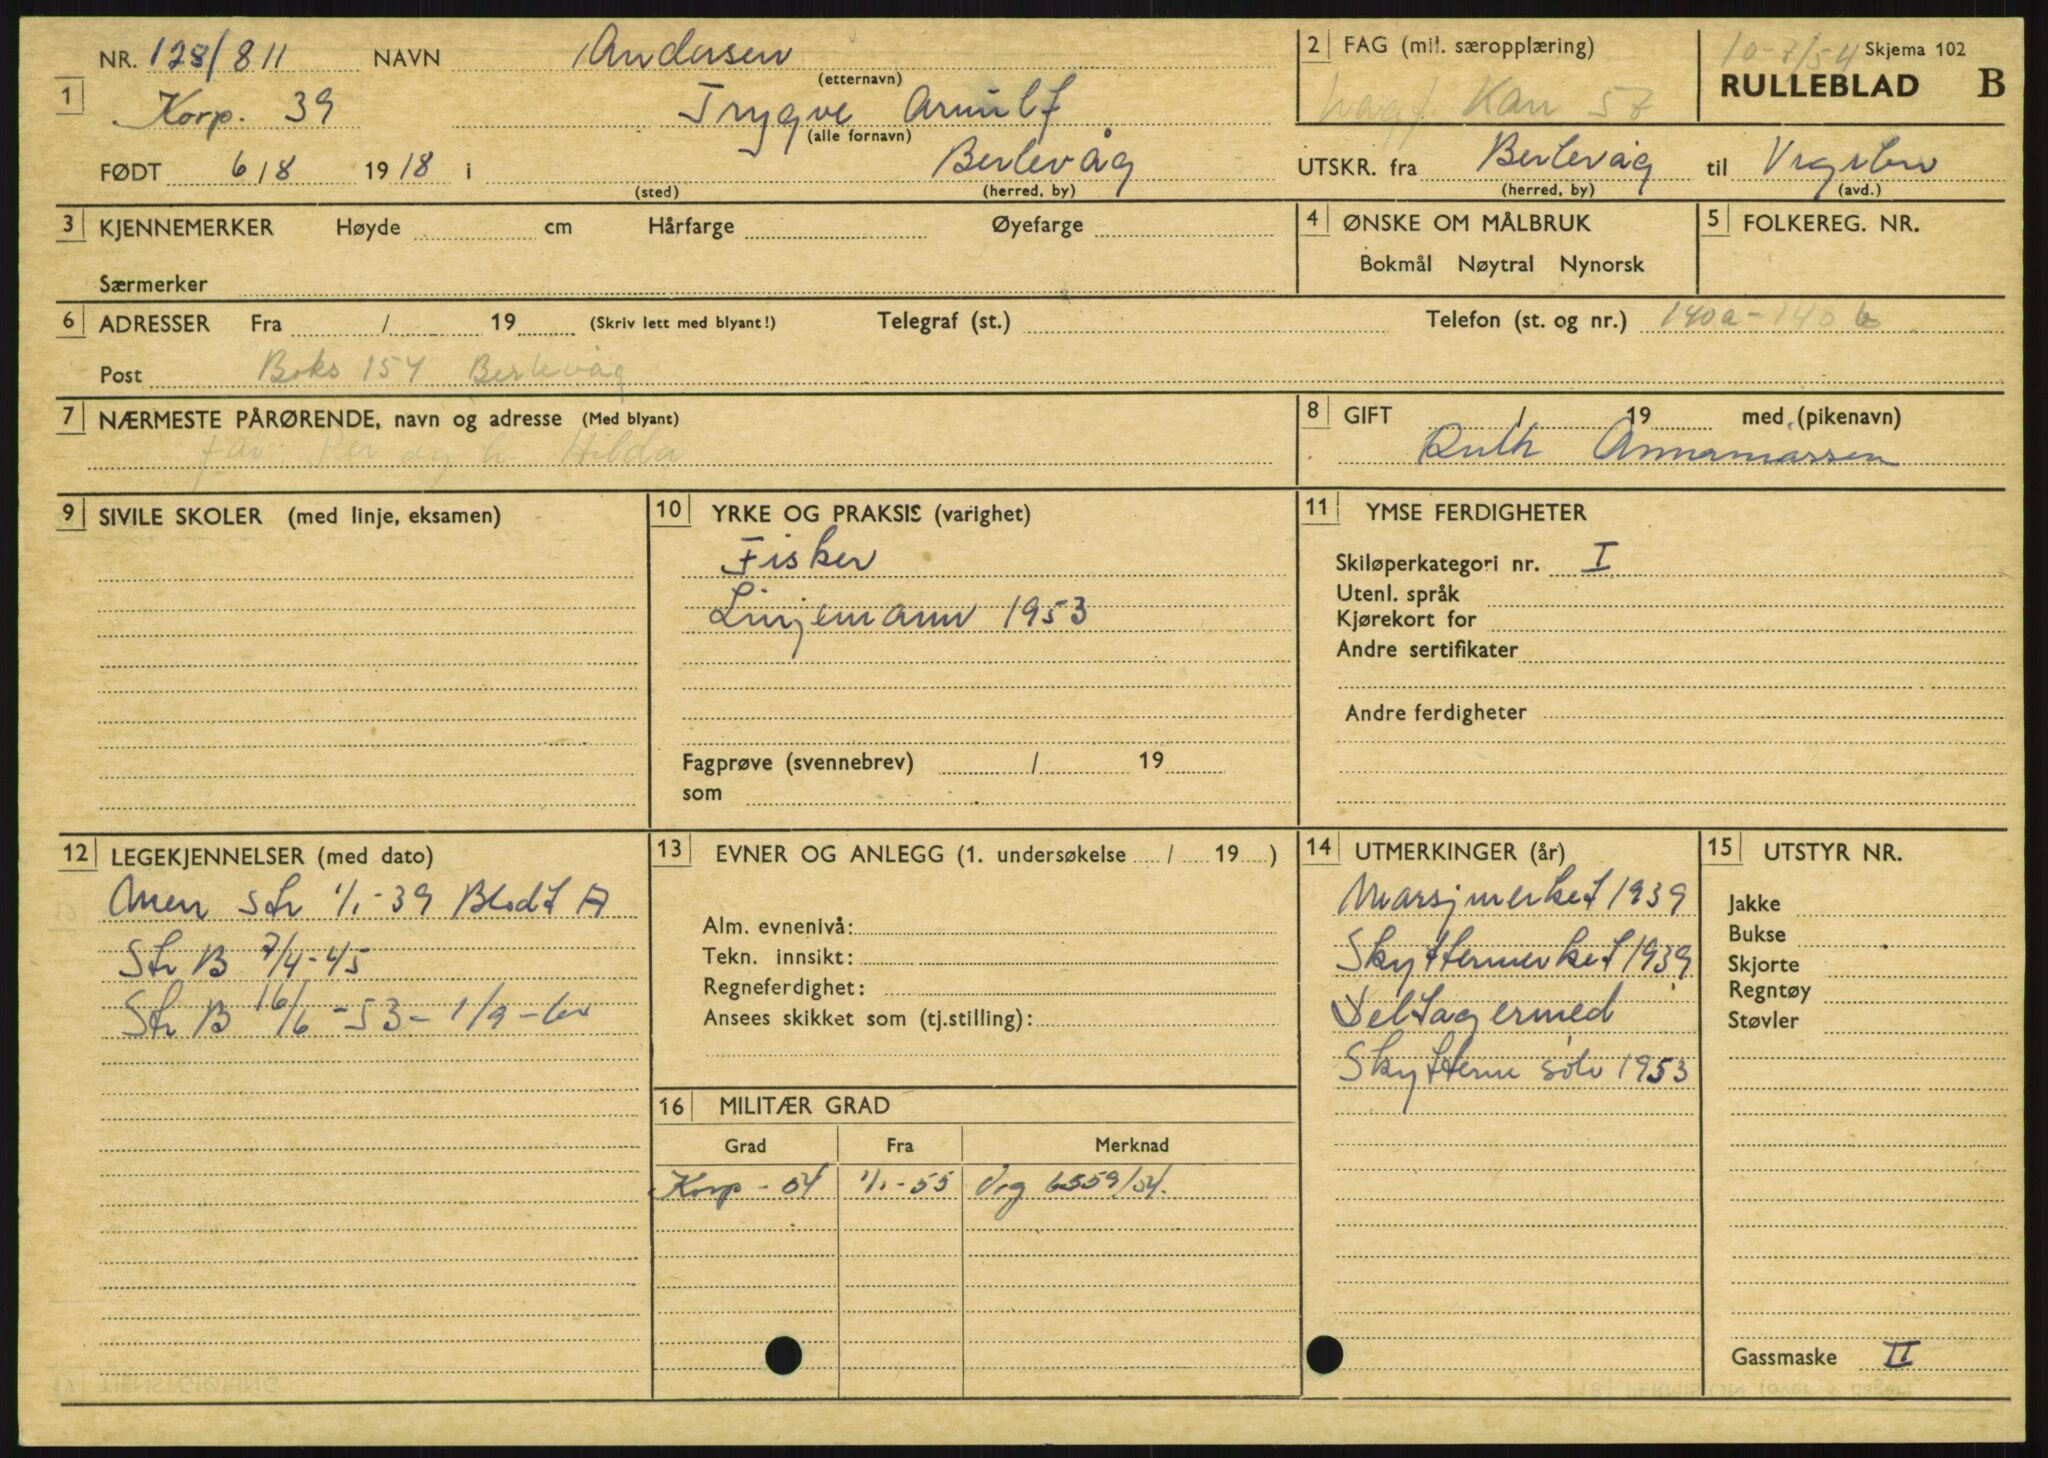 NR. 128/811 NAVN Andersen
(etternavn)
1 Korp. 39 Trygve Arnulf
(alle fornavn)
FØDT 6/8 1918 i Berlevåg
(sted) (herred, by)
2 FAG (mil. særopplæring)
Kan 57
10-7/54 Skjema 102
RULLEBLAD B
UTSKR. fra Berlevåg til
(herred, by) (avd.)
3 KJENNEMERKER Høyde cm Hårfarge Øyefarge
Særmerker
4 ØNSKE OM MÅLBRUK
Bokmål Nøytral Nynorsk
5 FOLKEREG. NR.
6 ADRESSER Fra / 19 (Skriv lett med blyant!) Telegraf (st.) Telefon (st. og nr.) 140a-140b
Post Boks 154 Berlevåg
7 NÆRMESTE PÅRØRENDE, navn og adresse (Med blyant)
far Per og h. Hilda
8 GIFT / 19 med (pikenavn)
Ruth Annamassen
9 SIVILE SKOLER (med linje, eksamen)
10 YRKE OG PRAKSIS (varighet)
Fisker
Linjemann 1953
Fagprøve (svennebrev) / 19
som
11 YMSE FERDIGHETER
Skiløperkategori nr. I
Utenl. språk
Kjørekort for
Andre sertifikater
Andre ferdigheter
12 LEGEKJENNELSER (med dato)
Str 1/1-39 Blodt A
Str B 7/4-45
Str B 16/6-53-1/9-
13 EVNER OG ANLEGG (1. undersøkelse / 19 )
Alm. evnenivå:
Tekn. innsikt:
Regneferdighet:
Ansees skikket som (tj.stilling):
14 UTMERKINGER (år)
Marsjmerket 1939
Skyttermerket 1939
Deltagermed
Skytterm sølv 1953
15 UTSTYR NR.
Jakke
Bukse
Skjorte
Regntøy
Støvler
Gassmaske II
16 MILITÆR GRAD
Grad Fra Merknad
Korp - 54 1/1-55 Vrg 6559/54.